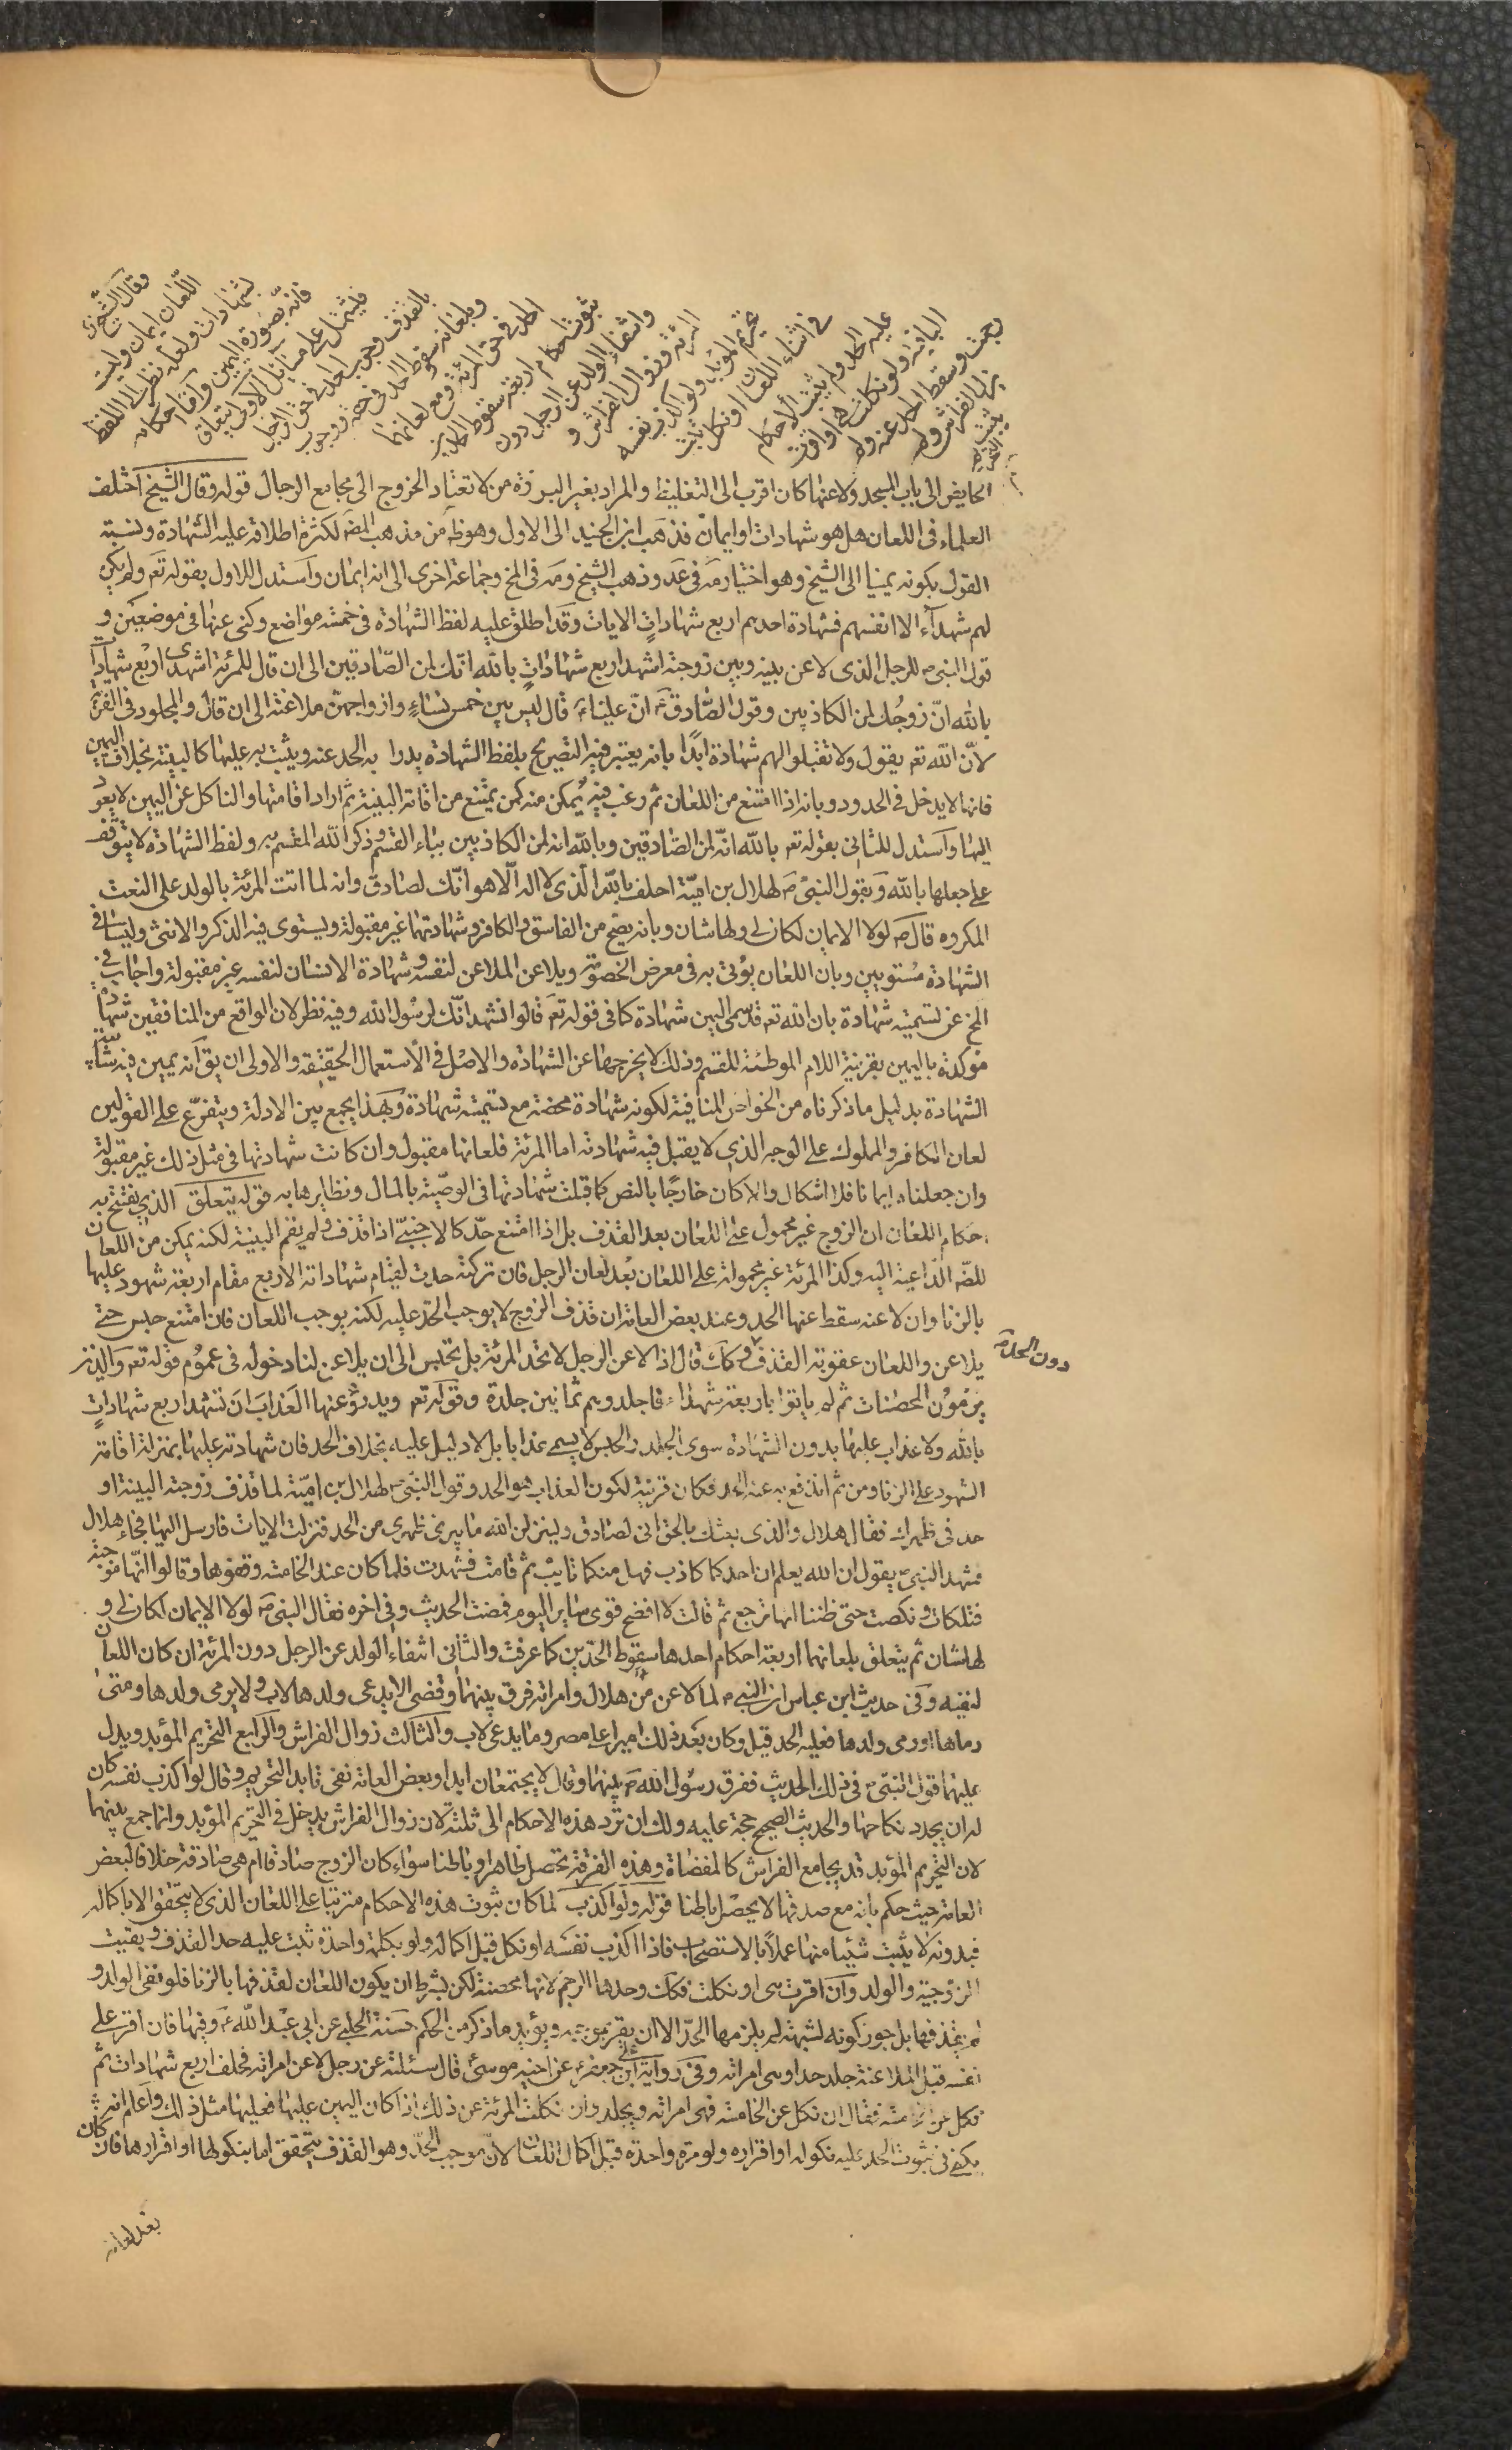 وقال الشيخ ره
اللعان ايمان وليست
بشهادات ولعله نظر الى اللفظ
فانه بصورة اليمين واما احكامه
فيشتمل على مسائل الاولى يتعلق
بالقذف وجوب الحد في حق الرجل
وبلعانه سقوط الحد في حقه ووجوب
الحد في حق المرئة ومع لعانهما
ثبوت احكام اربعة سقوط الحدين
وانتفاء الولد عن الرجل دون
المرئة وزوال الفراش و
تحريم المؤبد ولو اكذب نفسه
في اثناء اللعان او نكل ثبت
عليه الحد ولم يثبت الاحكام
الباقية ولو نكلت هى او اقرت
رجمت وسقط الحد عنه ولم
يزل الفراش ولم
يثبت
التحريم
الحايض الى باب المسجد ولاعنها كان اقرب الى التغليظ والمراد بغير البرزة من لا تعتاد الخروج الى مجامع الرجال قوله وقال الشيخ اختلف
العلماء فى اللعان هل هو شهادات او ايمان فذهب ابن الجنيد الى الاول وهو ظ من مذهب المص لكثرة اطلاقه عليه الشهادة ونسبة
القول بكونه يمينا الى الشيخ وهو اختياره فى عد وذهب الشيخ ومه فى المخ وجماعة اخرى الى انه ايمان واستدل للاول بقوله تعه ولم يكن
لهم شهدآء الا انفسهم فشهادة احدهم اربع شهادات الايات وقد اطلق عليه لفظ الشهادة فى خمسة مواضع وكنى عنها فى موضعين و
قول النبى ص للرجل الذى لاعن بينه وبين زوجته اشهد اربع شهادات بالله انك لمن الصادقين الى ان قال للمرئة اشهدى اربع شهادات
بالله ان زوجك لمن الكاذبين وقول الصادق ع ان عليا ع قال ليس بين خمس نساء وازواجهن ملاعنة الى ان قال والمجلود فى الفرية
لان الله تعه يقول ولا تقبلوا لهم شهادة ابدا بانه يعتبر فيه التصريح بلفظ الشهادة يدرا به الحد عنه ويثبت به عليها كالبينة بخلاف اليمين
فانها لا يدخل فى الحدود وبانه اذا امتنع من اللعان ثم رغب فيه يمكن منه كمن يمتنع من اقامة البينة ثم اراد اقامتها والناكل عن اليمين لا يعود
اليها واستدل للثانى بقوله تعه بالله انه لمن الصادقين وبالله انه لمن الكاذبين بباء القسم وذكر الله المقسم به ولفظ الشهادة لا يتوقف
على جعلها بالله وبقول النبى ص لهلال بن امية احلف بالله الذى لا اله الا هو انك لصادق وانه لما اتت المرئة بالولد على النعت
المكروه قال ص لولا الايمان لكان لى ولها شان وبانه يصح من الفاسق والكافر وشهادتهما غير مقبولة ويستوى فيه الذكر والانثى وليسا فى
الشهادة مستويين وبان اللعان يؤتى به فى معرض الخصومة ويلاعن الملاعن لنفسه وشهادة الانسان لنفسه غير مقبولة واجاب فى
المخ عن تسميته شهادة بان الله تعه قد سمى اليمين شهادة كما فى قوله تعه قالوا نشهد انك لرسول الله وفيه نظر لان الواقع من المنافقين شهادة
مؤكدة باليمين بقرينة اللام الموطئة للقسم وذلك لا يخرجها عن الشهادة والاصل فى الاستعمال الحقيقة والاولى ان يق انه يمين فيه شائبة
الشهادة بدليل ما ذكرناه من الخواص المنافية لكونه شهادة محضة مع تسميته شهادة وبهذا يجمع بين الادلة ويتفرع على القولين
لعان الكافر والمملوك على الوجه الذى لا يقبل فيه شهادته اما المرئة فلعانها مقبول وان كانت شهادتها فى مثل ذلك غير مقبولة
وان جعلناه ايمانا فلا اشكال والا كان خارجا بالنص كما قبلت شهادتها فى الوصية بالمال ونظايرها به قوله يتعلق الذى يفتتح به
احكام اللعان ان الزوج غير محمول على اللعان بعد القذف بل اذا امتنع حد كالاجنبى اذا قذف ولم يقم البينة لكنه يمكن من اللعان
للضرورة الداعية اليه وكذا المرئة غير محمولة على اللعان بعد لعان الرجل فان تركته حدت لقيام شهاداته الاربع مقام اربعة شهود عليها
بالزنا وان لاعنه سقط عنها الحد وعند بعض العامة ان قذف الزوج لا يوجب الحد عليه لكنه يوجب اللعان فان امتنع حبس حتى
يلاعن واللعان عقوبة القذف دون الحد وكك قال اذا لاعن الرجل لا تحد المرئة بل تحبس الى ان يلاعن لنا دخوله فى عموم قوله تعه والذين
يرمون المحصنات ثم لم ياتوا باربعة شهداء فاجلدوهم ثمانين جلدة وقوله تعه ويدرؤ عنها العذاب ان تشهد اربع شهادات
بالله ولا عذاب عليها بدون الشهادة سوى الجلد والحبس لا يسمى عذابا بل لا دليل عليه بخلاف الحد فان شهادته عليها بمنزلة اقامة
الشهود على الزنا ومن ثم اندفع به عنه الحد فكان قرينة لكون العذاب هو الحد وقول النبى ص لهلال بن امية لما قذف زوجته البينة او
حد فى ظهرك فقال هلال والذى بعثك بالحق انى لصادق ولينزلن الله ما يبرئ ظهرى من الحد فنزلت الايات فارسل اليها فجاء هلال
فشهد النبى ص يقول ان الله يعلم ان احدكما كاذب فهل منكما تايب ثم قامت فشهدت فلما كان عند الخامسة وقفوها وقالوا انها موجبة
فتلكات ونكصت حتى ظننا انها ترجع ثم قالت لا افضح قومى ساير اليوم فمضت الحديث وفى اخره فقال النبى ص لولا الايمان لكان لى و
لها شان ثم يتعلق بلعانهما اربعة احكام احدها سقوط الحدين كما عرفت والثانى انتفاء الولد عن الرجل دون المرئة ان كان اللعان
لنفيه وفى حديث ابن عباس ان النبى ص لما لاعن من هلال وامراته فرق بينهما وقضى الا يدعى ولدها لاب ولا يرمى ولدها ومتى
رماها او رمى ولدها فعليه الحد قيل وكان بعد ذلك اميرا على مصر وما يدعى لاب والثالث زوال الفراش والرابع التحريم المؤبد ويدل
عليهما قول النبى ص فى ذلك الحديث ففرق رسول الله ص بينهما وقال لا يجتمعان ابدا وبعض العامة نفى تابد التحريم وقال لو اكذب نفسه كان
له ان يجدد نكاحها والحديث الصحيح حجة عليه ولك ان ترد هذه الاحكام الى ثلثة لان زوال الفراش يدخل فى التحريم المؤبد وانما جمع بينهما
لان التحريم المؤبد قد يجامع الفراش كالمفضاة وهذه الفرقة تحصل ظاهرا وباطنا سواء كان الزوج صادقا ام هى صادقة خلافا لبعض
العامة حيث حكم بانه مع صدقها لا يحصل باطنا قوله ولو اكذب لما كان ثبوت هذه الاحكام مترتبا على اللعان الذى لا يتحقق الا باكماله
فبدونه لا يثبت شيئا منها عملا بالاستصحاب فاذا اكذب نفسه او نكل قبل اكماله ولو بكلمة واحدة ثبت عليه حد القذف وبقيت
الزوجية والولد وان اقرت هى او نكلت فكك وحدها الرجم لانها محصنة لكن بشرط ان يكون اللعان لقذفها بالزنا فلو نفى الولد و
لم يقذفها بل جوز كونه لشبهة لم يلزمها الحد الا ان يقر بموجبه ويؤيد ما ذكر من الحكم حسنة الحلبى عن ابى عبد الله ع وفيها فان اقر على
نفسه قبل الملاعنة جلد حدا وهى امراته وفى رواية على بن جعفر ع عن اخيه موسى ع قال سئلته عن رجل لاعن امراته فحلف اربع شهادات ثم
نكل عن الخامسة فقال ان نكل عن الخامسة فهى امراته ويجلد وان نكلت المرئة عن ذلك اذا كان اليمين عليها فعليها مثل ذلك واعلم انه
يكفى فى ثبوت الحد عليه نكوله او اقراره ولو مرة واحدة قبل اكمال اللعان لان موجب الحد وهو القذف يتحقق اما بنكولها او اقرارها فان كان
بعد لعانه